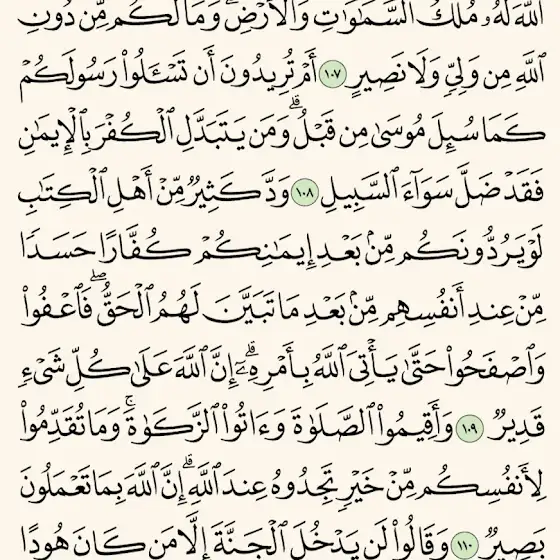 ٱللَّهَ لَهُۥ مُلْكُ ٱلسَّمَٰوَٰتِ وَٱلْأَرْضِۗ وَمَا لَكُم مِّن دُونِ
ٱللَّهِ مِن وَلِيٍّ وَلَا نَصِيرٍ ١٠٧ أَمْ تُرِيدُونَ أَن تَسْـَٔلُوا۟ رَسُولَكُمْ
كَمَا سُئِلَ مُوسَىٰ مِن قَبْلُۗ وَمَن يَتَبَدَّلِ ٱلْكُفْرَ بِٱلْإِيمَٰنِ
فَقَدْ ضَلَّ سَوَآءَ ٱلسَّبِيلِ ١٠٨ وَدَّ كَثِيرٌ مِّنْ أَهْلِ ٱلْكِتَٰبِ
لَوْ يَرُدُّونَكُم مِّنۢ بَعْدِ إِيمَٰنِكُمْ كُفَّارًا حَسَدًا
مِّنْ عِندِ أَنفُسِهِم مِّنۢ بَعْدِ مَا تَبَيَّنَ لَهُمُ ٱلْحَقُّۖ فَٱعْفُوا۟
وَٱصْفَحُوا۟ حَتَّىٰ يَأْتِىَ ٱللَّهُ بِأَمْرِهِۦٓۗ إِنَّ ٱللَّهَ عَلَىٰ كُلِّ شَىْءٍ
قَدِيرٌ ١٠٩ وَأَقِيمُوا۟ ٱلصَّلَوٰةَ وَءَاتُوا۟ ٱلزَّكَوٰةَۚ وَمَا تُقَدِّمُوا۟
لِأَنفُسِكُم مِّنْ خَيْرٍ تَجِدُوهُ عِندَ ٱللَّهِۗ إِنَّ ٱللَّهَ بِمَا تَعْمَلُونَ
بَصِيرٌ ١١٠ وَقَالُوا۟ لَن يَدْخُلَ ٱلْجَنَّةَ إِلَّا مَن كَانَ هُودًا